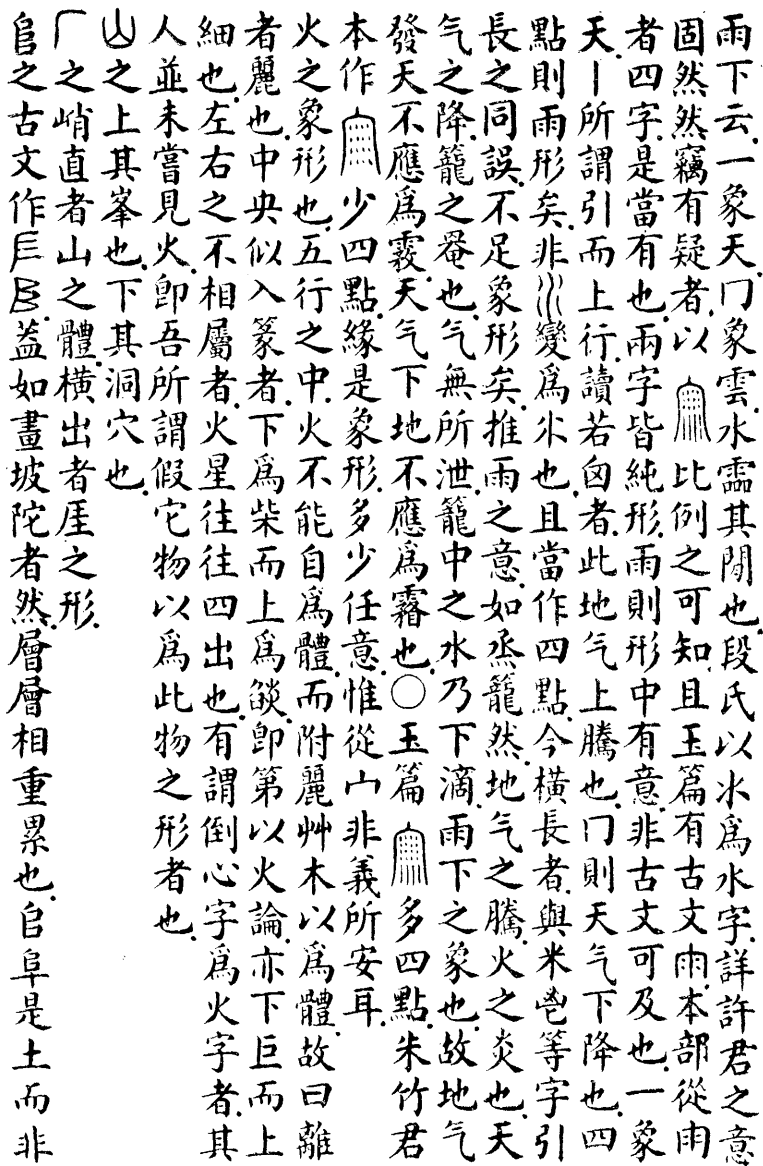 雨下云一象天冂象雲水霝其閒也段氏以氺爲水字詳許君之意
固然然竊有疑者以比例之可知且玉篇有古文𠕲本部從雨
者四字是當有也兩字皆純形雨則形中有意非古文可及也一象
天丨所謂引而上行讀若囟者此地气上騰也冂則天气下降也四
點則雨形矣非變爲氺也且當作四點今橫長者與米鬯等字引
長之同誤不足象形矣推雨之意如烝籠然地气之騰火之炎也天
气之降籠之罨也气無所泄籠中之水乃下滴雨下之象也故地气
發天不應爲霿天气下地不應爲霧也○玉篇多四點朱竹君
本作少四點緣是象形多少任意惟從宀非義所安耳
火之象形也五行之中火不能自爲體而附麗艸木以爲體故曰離
者麗也中央似入篆者下爲柴而上爲燄卽第以火論亦下巨而上
細也左右之不相屬者火星往往四出也有謂倒心字爲火字者其
人並未嘗見火卽吾所謂假它物以爲此物之形者也
山之上其峯也下其洞穴也
厂之峭直者山之體橫出者厓之形
𨸏之古文作蓋如畫坡陀者然層層相重累也𠂤阜是土而非